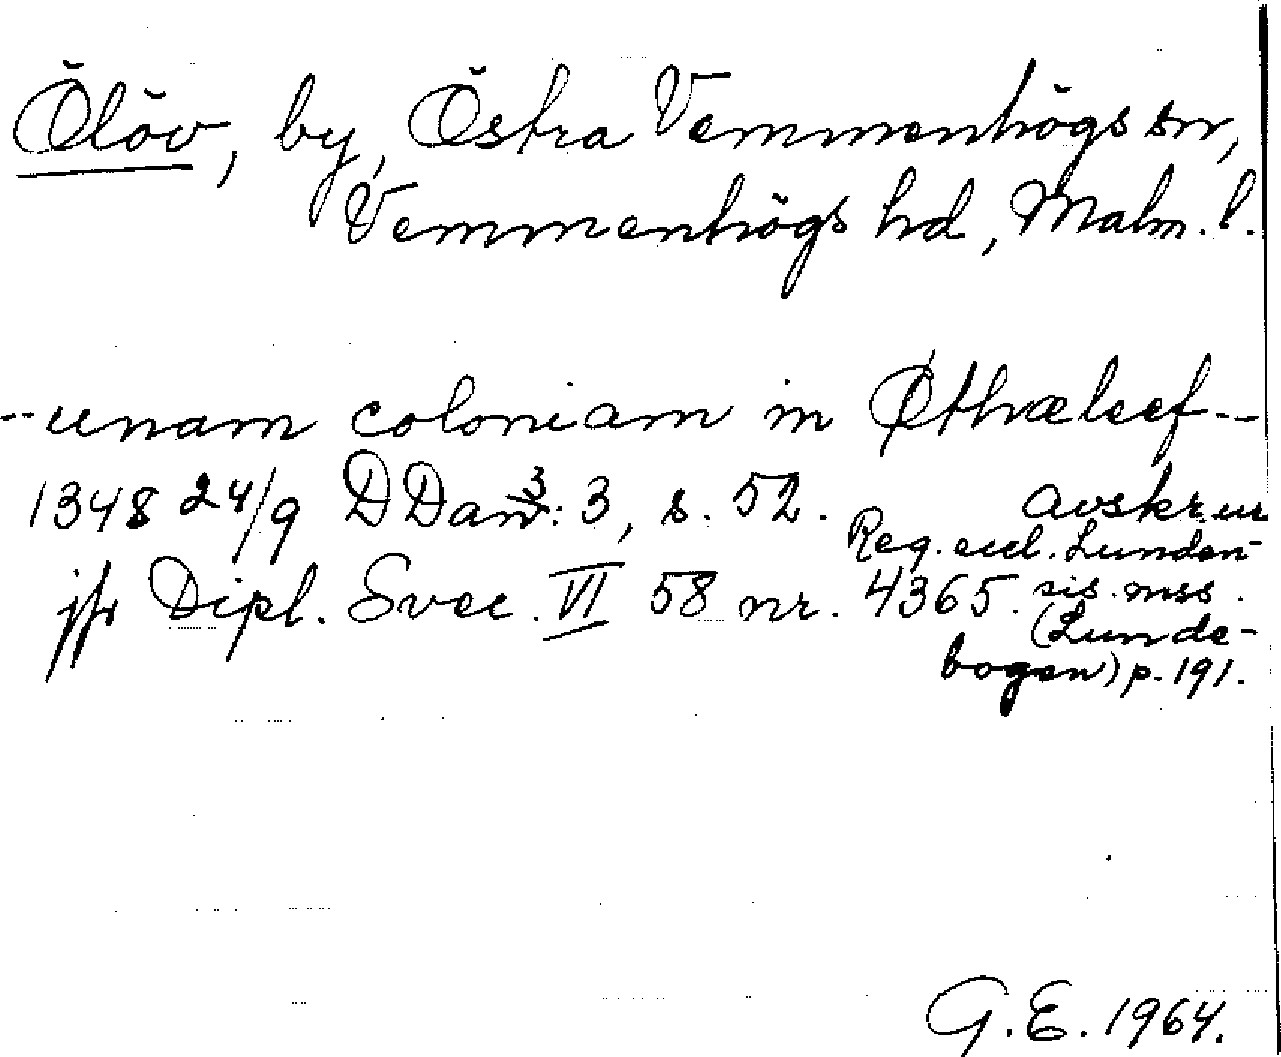 Ölöv, by, Östra Vemmenhögs sn,
Vemmenhögs hd, Malm. l.
-- unam coloniam in Øthæleef --
1348 24/9 DDan³: 3, s. 52. avskr. ur
Reg. eccl. Lunden-
jfr Dipl. Svec. VI 58 nr. 4365. sis. mss.
(Lunde-
bogen) p. 191.
G.E. 1964.